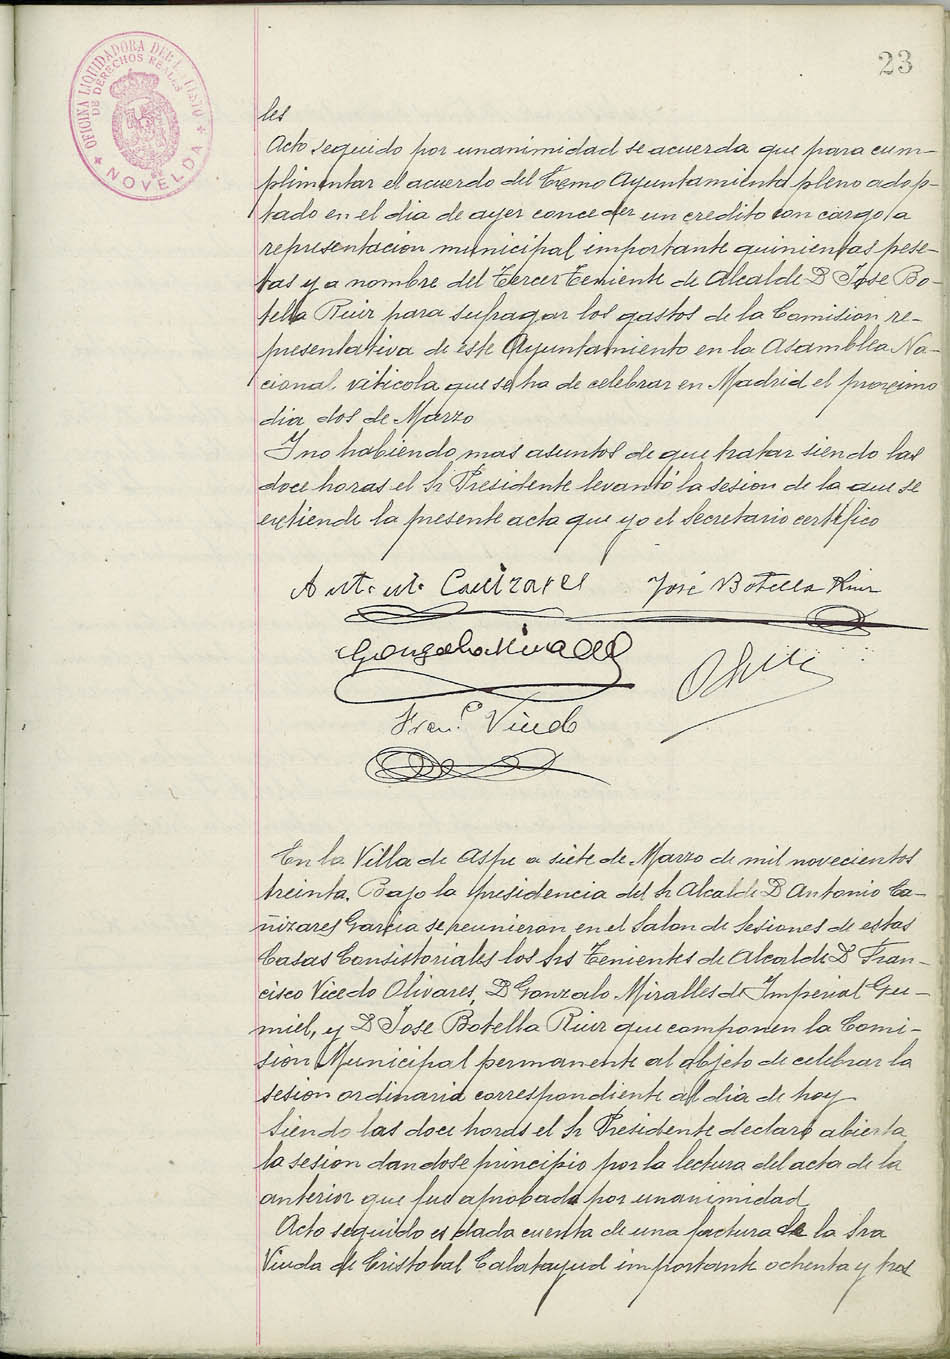 23
OFICINA LIQUIDADORA DEL
DE DERECHOS REALES
NOVELDA
les
Acto seguido por unanimidad se acuerda que para cum-
plimentar el acuerdo del Excmo Ayuntamiento pleno adop-
tado en el dia de ayer conceder un credito con cargo a
representacion municipal importante quinientas pese-
tas y a nombre del Tercer Teniente de Alcalde D Jose Bo-
tella Ruiz para sufragar los gastos de la Comision re-
presentativa de este Ayuntamiento en la Asamblea Na-
cional viticola que se ha de celebrar en Madrid el proximo
dia dos de Marzo
Y no habiendo mas asuntos de que tratar siendo las
doce horas el Sr Presidente levantó la sesion de la que se
extiende la presente acta que yo el Secretario certifico
Antonio Cañizares José Botella Ruiz
Gonzalo Miralles
Fran.co Vicedo
En la Villa de Aspe a siete de Marzo de mil novecientos
treinta. Bajo la presidencia del Sr Alcalde D Antonio Ca-
ñizares Garcia se reunieron en el Salon de Sesiones de estas
Casas Consistoriales los Srs Tenientes de Alcalde D Fran-
cisco Vicedo Olivares, D Gonzalo Miralles de Imperial Gu-
miel, y D Jose Botella Ruiz que componen la Comi-
sion Municipal permanente al objeto de celebrar la
sesion ordinaria correspondiente al dia de hoy
Siendo las doce horas el Sr Presidente declaro abierta
la sesion dandose principio por la lectura del acta de la
anterior que fue aprobada por unanimidad
Acto seguido es dada cuenta de una factura de la Sra
Viuda de Cristobal Calatayud importante ochenta y tres